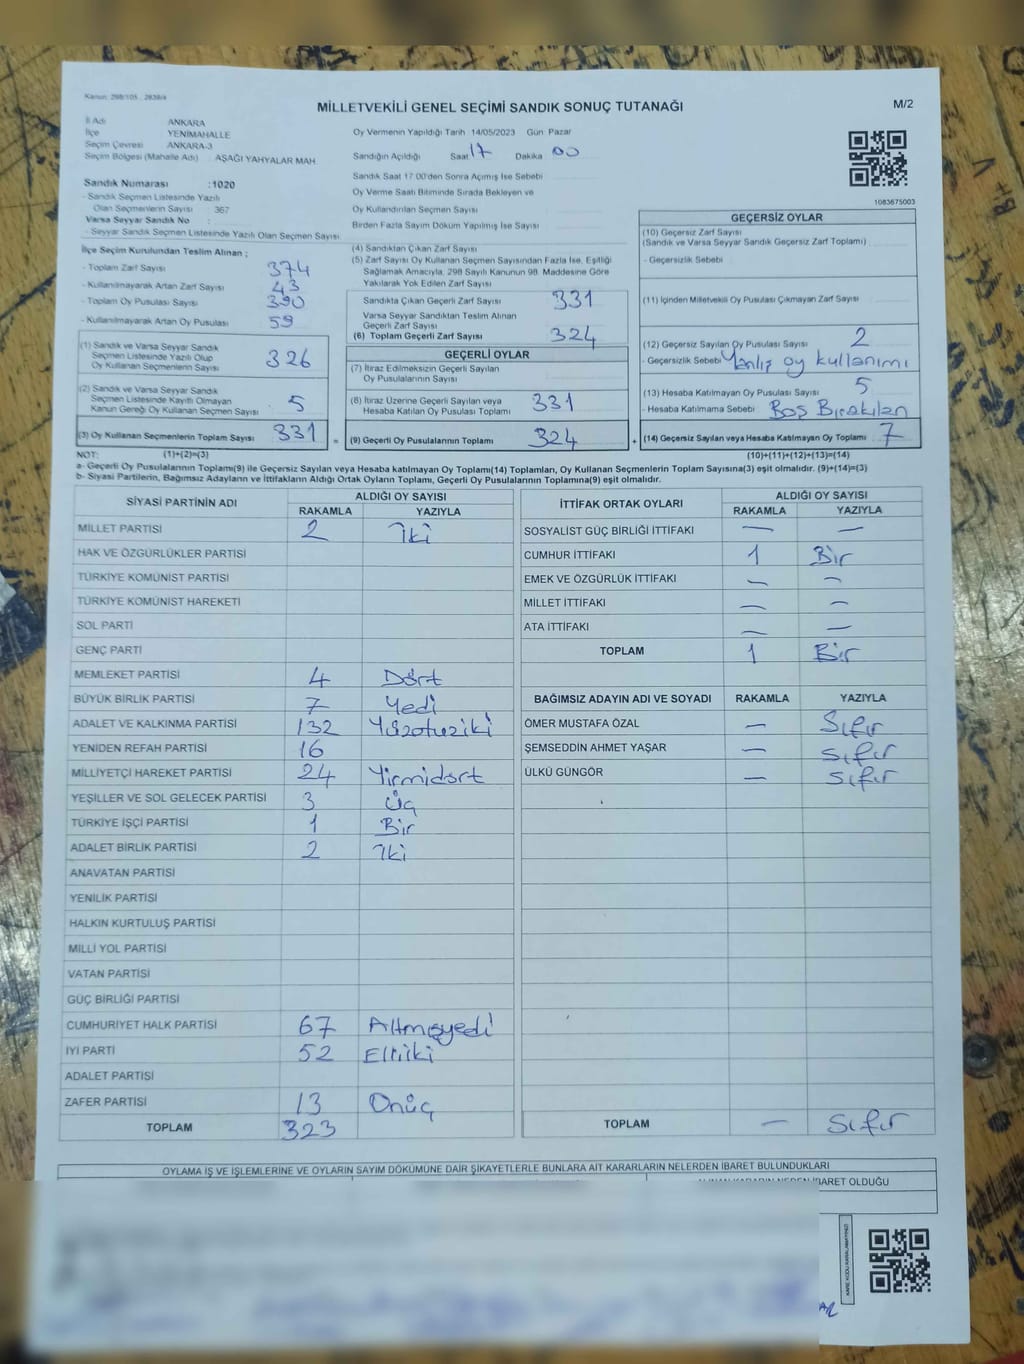 Kanun: 298/105 , 2839/4
MİLLETVEKİLİ GENEL SEÇİMİ SANDIK SONUÇ TUTANAĞI
M/2
İl Adı ANKARA
İlçe YENİMAHALLE
Seçim Çevresi ANKARA-3
Seçim Bölgesi (Mahalle Adı) AŞAĞI YAHYALAR MAH.
Oy Vermenin Yapıldığı Tarih 14/05/2023 Gün Pazar
Sandığın Açıldığı Saat 17 Dakika 00
Sandık Saat 17.00'den Sonra Açılmış İse Sebebi
Oy Verme Saati Bitiminde Sırada Bekleyen ve
Oy Kullandırılan Seçmen Sayısı
Birden Fazla Sayım Döküm Yapılmış İse Sayısı
1083675003
Sandık Numarası :1020
- Sandık Seçmen Listesinde Yazılı
Olan Seçmenlerin Sayısı 367
Varsa Seyyar Sandık No :
- Seyyar Sandık Seçmen Listesinde Yazılı Olan Seçmen Sayısı
İlçe Seçim Kurulundan Teslim Alınan ;
- Toplam Zarf Sayısı 374
- Kullanılmayarak Artan Zarf Sayısı 43
- Toplam Oy Pusulası Sayısı 390
- Kullanılmayarak Artan Oy Pusulası 59
(1) Sandık ve Varsa Seyyar Sandık
Seçmen Listesinde Yazılı Olup
Oy Kullanan Seçmenlerin Sayısı 326
(2) Sandık ve Varsa Seyyar Sandık
Seçmen Listesinde Kayıtlı Olmayan
Kanun Gereği Oy Kullanan Seçmen Sayısı 5
(3) Oy Kullanan Seçmenlerin Toplam Sayısı 331 =
(4) Sandıktan Çıkan Zarf Sayısı
(5) Zarf Sayısı Oy Kullanan Seçmen Sayısından Fazla İse, Eşitliği
Sağlamak Amacıyla, 298 Sayılı Kanunun 98. Maddesine Göre
Yakılarak Yok Edilen Zarf Sayısı
Sandıkta Çıkan Geçerli Zarf Sayısı 331
Varsa Seyyar Sandıktan Teslim Alınan
Geçerli Zarf Sayısı
(6) Toplam Geçerli Zarf Sayısı 324
GEÇERLİ OYLAR
(7) İtiraz Edilmeksizin Geçerli Sayılan
Oy Pusulalarının Sayısı
(8) İtiraz Üzerine Geçerli Sayılan veya
Hesaba Katılan Oy Pusulası Toplamı 331
(9) Geçerli Oy Pusulalarının Toplamı 324 +
GEÇERSİZ OYLAR
(10) Geçersiz Zarf Sayısı
(Sandık ve Varsa Seyyar Sandık Geçersiz Zarf Toplamı)
- Geçersizlik Sebebi
(11) İçinden Milletvekili Oy Pusulası Çıkmayan Zarf Sayısı
(12) Geçersiz Sayılan Oy Pusulası Sayısı 2
- Geçersizlik Sebebi Yanlış oy kullanımı
(13) Hesaba Katılmayan Oy Pusulası Sayısı 5
- Hesaba Katılmama Sebebi Boş Bırakılan
(14) Geçersiz Sayılan veya Hesaba Katılmayan Oy Toplamı 7
NOT: (1)+(2)=(3) (10)+(11)+(12)+(13)=(14)
a- Geçerli Oy Pusulalarının Toplamı(9) ile Geçersiz Sayılan veya Hesaba katılmayan Oy Toplamı(14) Toplamları, Oy Kullanan Seçmenlerin Toplam Sayısına(3) eşit olmalıdır. (9)+(14)=(3)
b- Siyasi Partilerin, Bağımsız Adayların ve İttifakların Aldığı Ortak Oyların Toplamı, Geçerli Oy Pusulalarının Toplamına(9) eşit olmalıdır.
SİYASİ PARTİNİN ADI ALDIĞI OY SAYISI
RAKAMLA YAZIYLA
MİLLET PARTİSİ 2 İki
HAK VE ÖZGÜRLÜKLER PARTİSİ
TÜRKİYE KOMÜNİST PARTİSİ
TÜRKİYE KOMÜNİST HAREKETİ
SOL PARTİ
GENÇ PARTİ
MEMLEKET PARTİSİ 4 Dört
BÜYÜK BİRLİK PARTİSİ 7 Yedi
ADALET VE KALKINMA PARTİSİ 132 Yüzotuziki
YENİDEN REFAH PARTİSİ 16
MİLLİYETÇİ HAREKET PARTİSİ 24 Yirmidört
YEŞİLLER VE SOL GELECEK PARTİSİ 3 Üç
TÜRKİYE İŞÇİ PARTİSİ 1 Bir
ADALET BİRLİK PARTİSİ 2 İki
ANAVATAN PARTİSİ
YENİLİK PARTİSİ
HALKIN KURTULUŞ PARTİSİ
MİLLİ YOL PARTİSİ
VATAN PARTİSİ
GÜÇ BİRLİĞİ PARTİSİ
CUMHURİYET HALK PARTİSİ 67 Altmışyedi
İYİ PARTİ 52 Elliiki
ADALET PARTİSİ
ZAFER PARTİSİ 13 Onüç
TOPLAM 323
İTTİFAK ORTAK OYLARI ALDIĞI OY SAYISI
RAKAMLA YAZIYLA
SOSYALİST GÜÇ BİRLİĞİ İTTİFAKI — —
CUMHUR İTTİFAKI 1 Bir
EMEK VE ÖZGÜRLÜK İTTİFAKI — —
MİLLET İTTİFAKI — —
ATA İTTİFAKI — —
TOPLAM 1 Bir
BAĞIMSIZ ADAYIN ADI VE SOYADI RAKAMLA YAZIYLA
ÖMER MUSTAFA ÖZAL — Sıfır
ŞEMSEDDİN AHMET YAŞAR — Sıfır
ÜLKÜ GÜNGÖR — Sıfır
TOPLAM — Sıfır
OYLAMA İŞ VE İŞLEMLERİNE VE OYLARIN SAYIM DÖKÜMÜNE DAİR ŞİKAYETLERLE BUNLARA AİT KARARLARIN NELERDEN İBARET BULUNDUKLARI
İBARET OLDUĞU